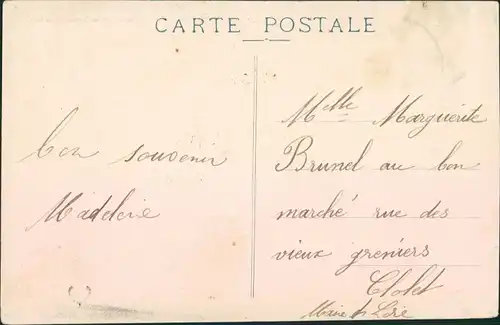 CARTE POSTALE
bon souvenir
Madeleine
Melle Marguerite
Brunel au bon
marché rue des
vieux greniers
Cholet
Maine & Loire